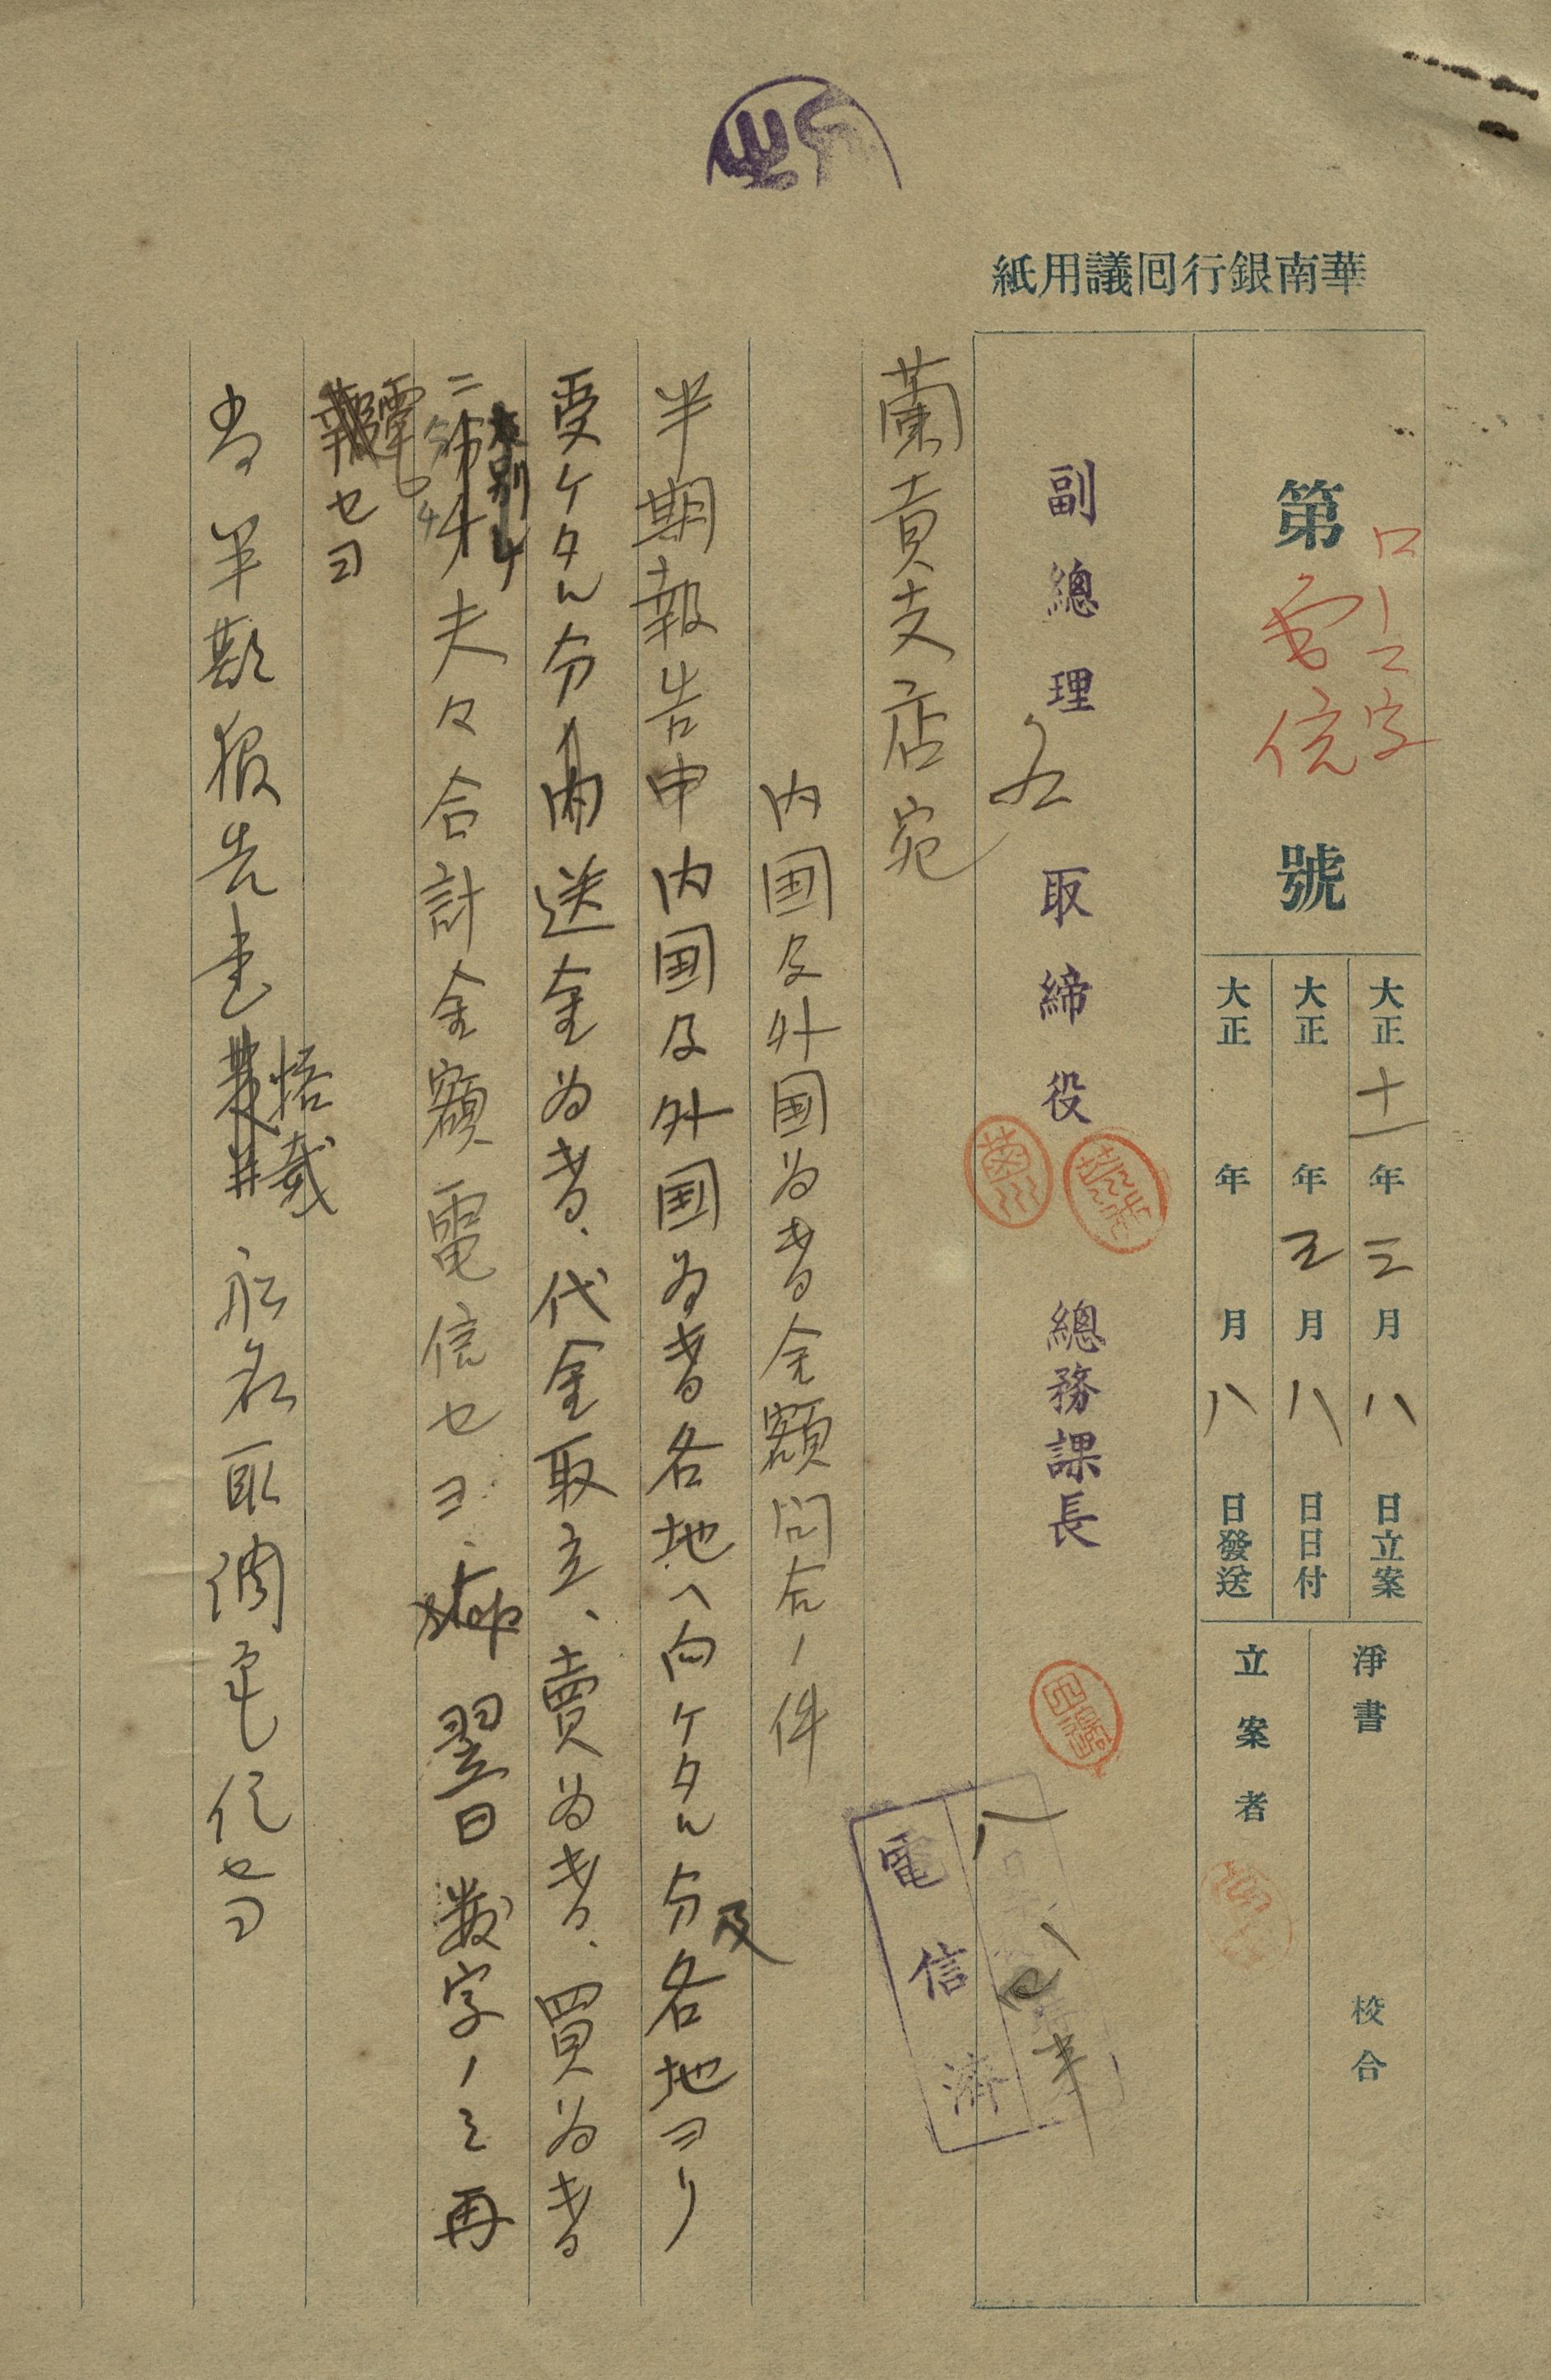 華南銀行囘議用紙
第 電信 號
大正十一年三月八日立案
大正 年三月八日日付
大正 年 月八日發送
淨書 校合
立案者
副總理 取締役 總務課長
電信濟
蘭貢支店宛
内国及外国為替金額問合ノ件
半期報告中内国及外国為替各地ヘ向ケタル分及各地ヨリ
受ケタル分 送金為替、代金取立、賣為替、買為替
ニ 夫々合計金額電信セヨ、 翌日数字ノミ再
電セヨ
尚半期報告書 記名取調電信セヨ